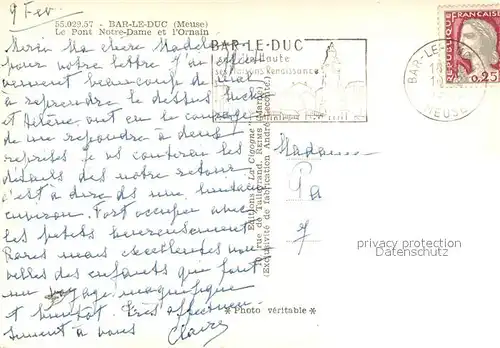 9 Fev
55.029.57 - BAR-LE-DUC (Meuse)
Le Pont Notre-Dame et l'Ornain
Merci Ma chère Madele
pour votre lettre J'ai
vement beaucoup de mal
à reprendre le dessus
et Hélène ont eu le courage
de me répondre à deux
reprises je vous conterai les
détails de notre retour
c'est à dire dans une huitaine
environ. Fort occupée avec
les petits heureusement
Rares mais excellentes nou
velles des enfants qui font
un voyage magnifique
et bientôt. Très affectueu
sement à vous
Claire
BAR-LE-DUC
ses Maisons Renaissance
Editions "La Cigogne"
10, rue de Talleyrand, REIMS (Marne)
(Exclusivité de fabrication André Leconte)
* Photo véritable *
Madame
Pa
7
REPUBLIQUE
FRANÇAISE
0,25
BAR-LE-DUC
MEUSE
privacy protection
Datenschutz